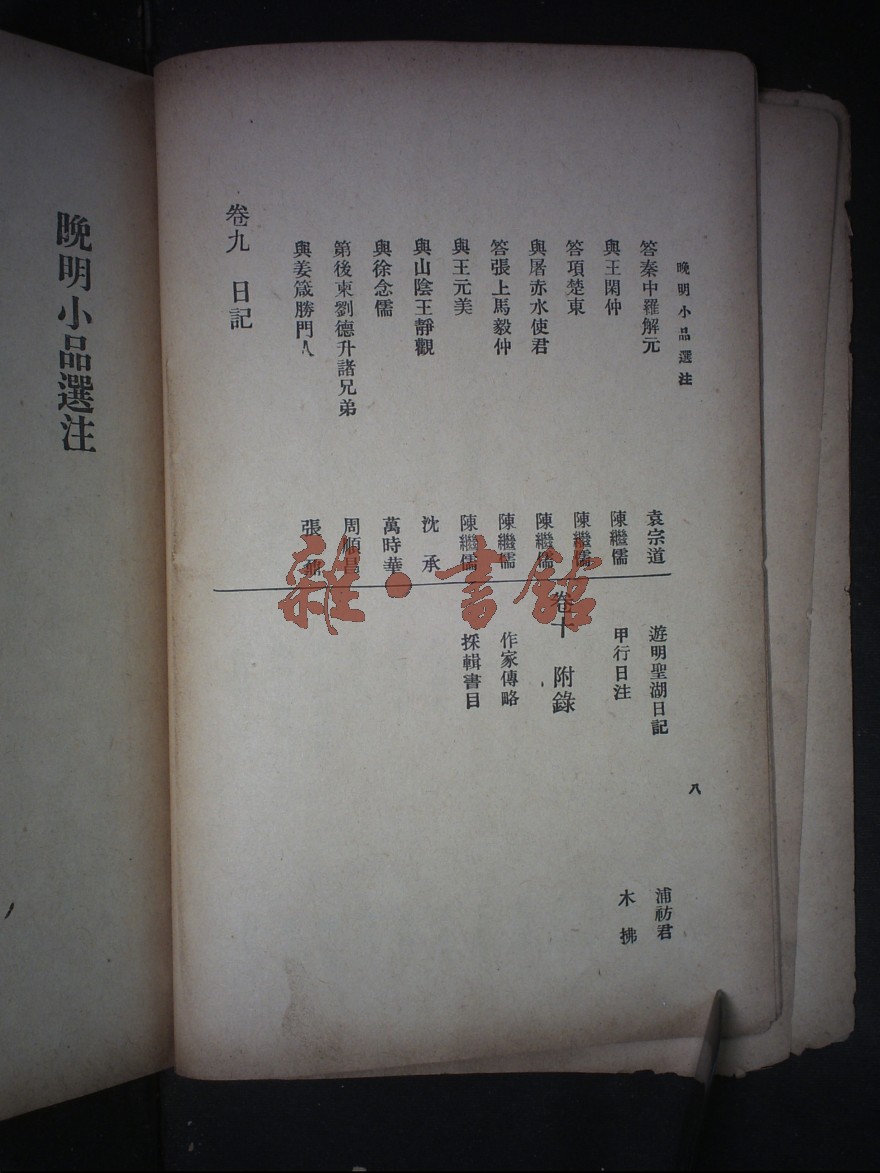 晚明小品選注
答秦中羅解元 袁宗道
與王閑仲 陳繼儒
答項楚東 陳繼儒
與屠赤水使君 陳繼儒
答張上馬毅仲 陳繼儒
與王元美 陳繼儒
與山陰王靜觀 沈承
與徐念儒 萬時華
第後柬劉德升諸兄弟 周順昌
與姜箴勝門人 張鼐
卷九 日記
遊明聖湖日記 浦祊君
甲行日注 木拂
卷十 附錄
作家傳略
採輯書目
八
晚明小品選注
雜·書館